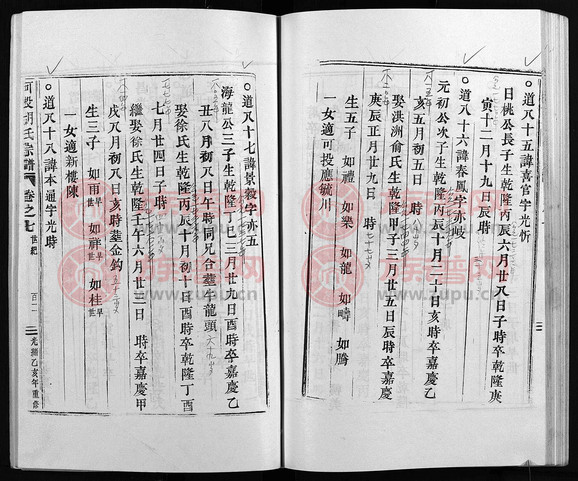 道八十五諱喜官字光忻
日桃公長子生乾隆丙辰六月廿八日子時卒乾隆庚
寅十二月十九日辰時
道八十六諱春鳳字亦岐
元初公次子生乾隆丙辰十月二十日亥時卒嘉慶乙
亥五月初五日 時
娶洪洲俞氏生乾隆甲子三月廿五日辰時卒嘉慶
庚辰正月廿九日 時
生五子 如禮 如樂 如龍 如疇 如騰
一女適可投應毓川
道八十七諱景毅字亦五
海龍公三子生乾隆丁巳三月廿九日酉時卒嘉慶乙
丑八月初八日午時同兄合塟牛龍頭
娶徐氏生乾隆丙辰十月初十日酉時卒乾隆丁酉
七月廿四日子時
繼娶徐氏生乾隆壬午六月廿三日 時卒嘉慶甲
戌八月初八日亥時塟金鈎
生三子 如雨早世 如祥早世 如桂早世
一女適新樓陳
道八十八諱本通字光時
可投胡氏宗譜 卷之七 世紀 百二 光緒乙亥年重修
族譜网
www.zupu.cn
族譜网
www.zupu.cn